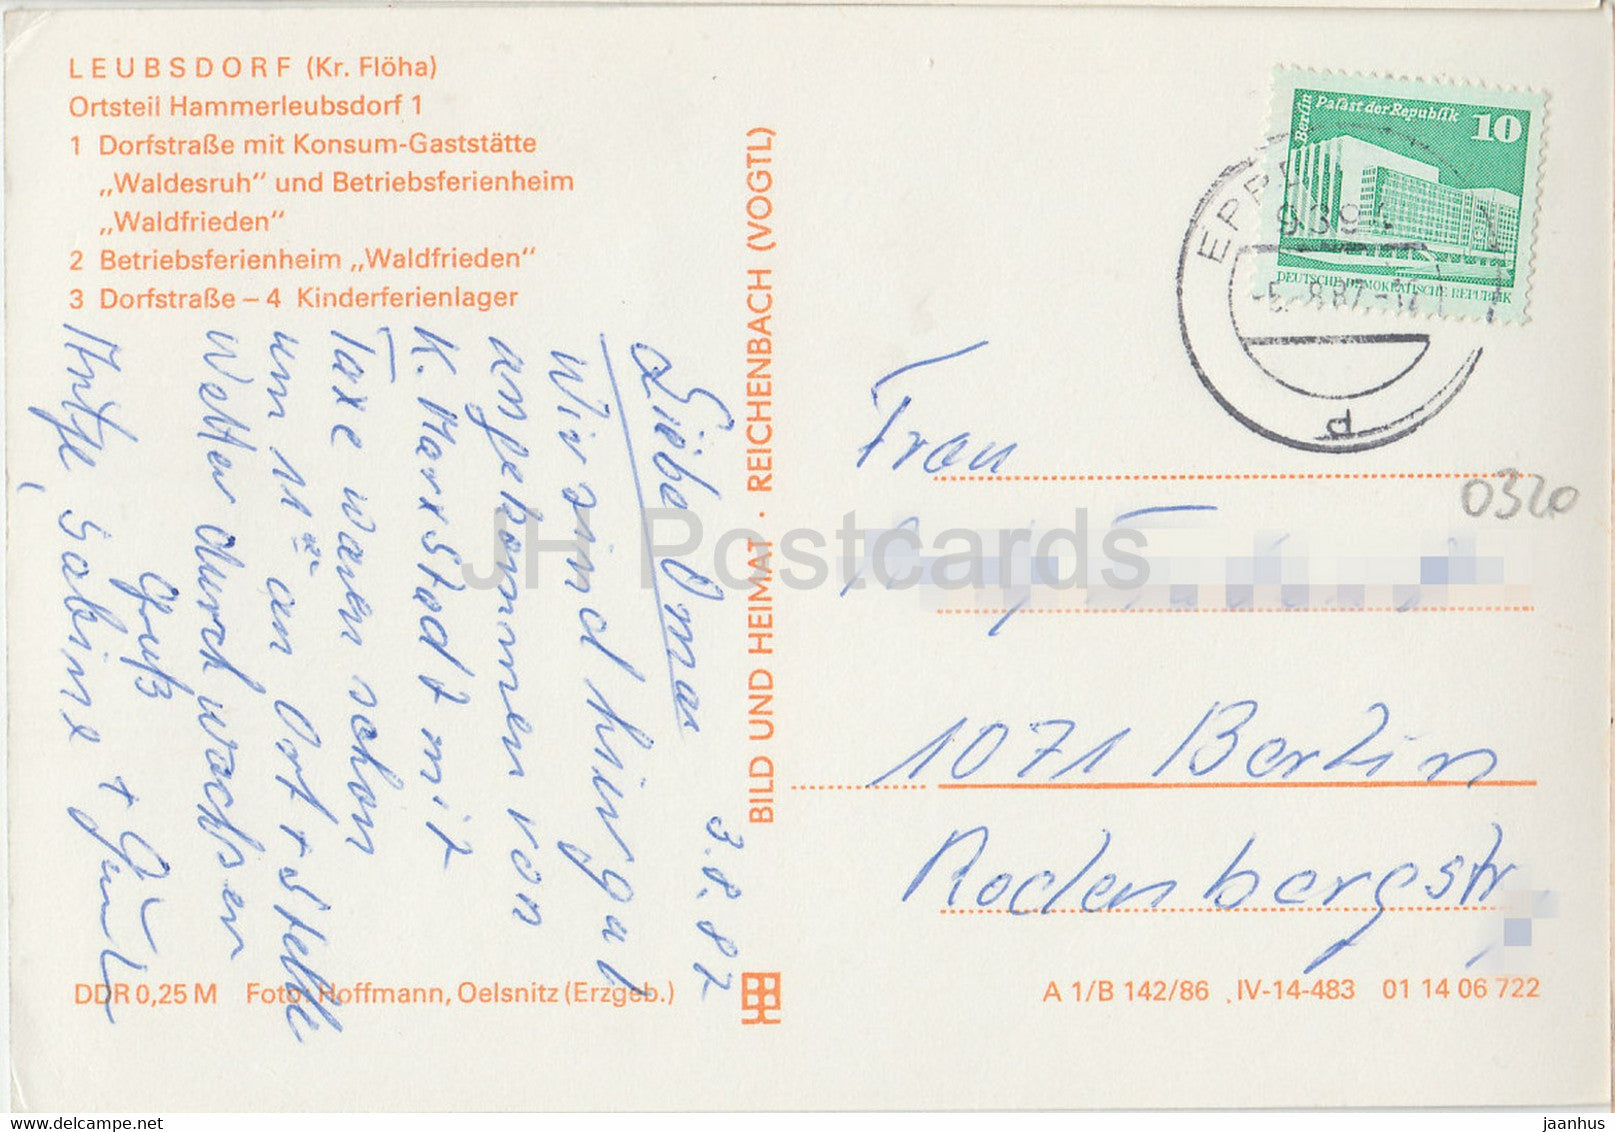 LEUBSDORF (Kr. Flöha)
Ortsteil Hammerleubsdorf 1
1 Dorfstraße mit Konsum-Gaststätte
„Waldesruh" und Betriebsferienheim
„Waldfrieden"
2 Betriebsferienheim „Waldfrieden"
3 Dorfstraße – 4 Kinderferienlager
3.8.87
Liebe Omas
Wir sind hier gut
angekommen von
K. Marx Stadt mit
Taxe waren schon
um 11 an Ort + Stelle
Wetter durchwachsen
Gruß
Sabine +
DDR 0,25 M Foto: Hoffmann, Oelsnitz (Erzgeb.)
BILD UND HEIMAT · REICHENBACH (VOGTL)
Berlin Palast der Republik 10
DEUTSCHE DEMOKRATISCHE REPUBLIK
9394
-5.-8.87.-
Frau
0320
1071 Berlin
Rodenbergstr
A 1/B 142/86 IV-14-483 01 14 06 722
JH Postcards
www.delcampe.net
jaanhus